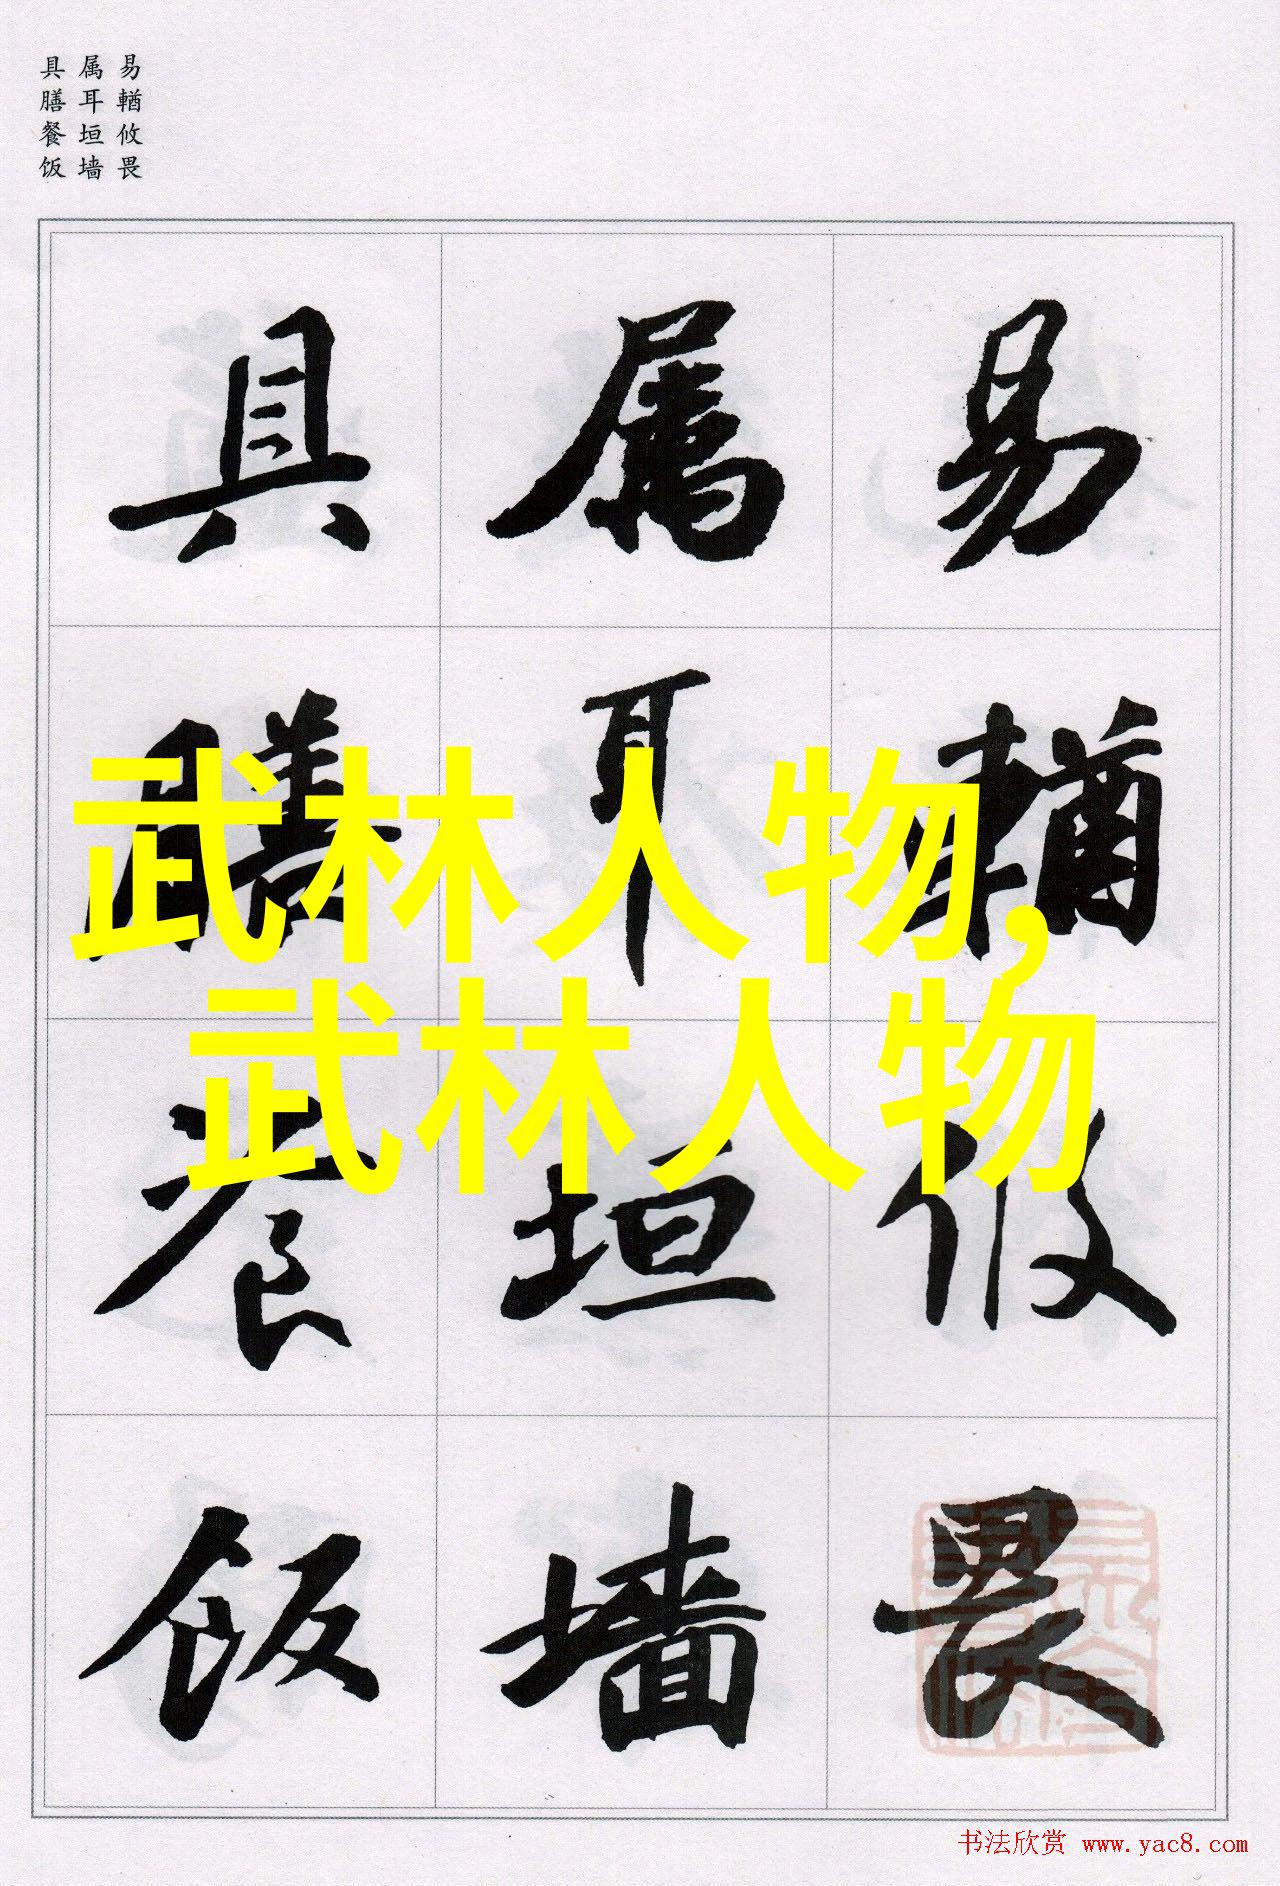 易輶攸畏
属耳垣墙
具膳餐饭
易輶攸畏
属耳垣墙
具膳餐饭
武林人物,
武林人物
书法欣赏 www.yac8.com